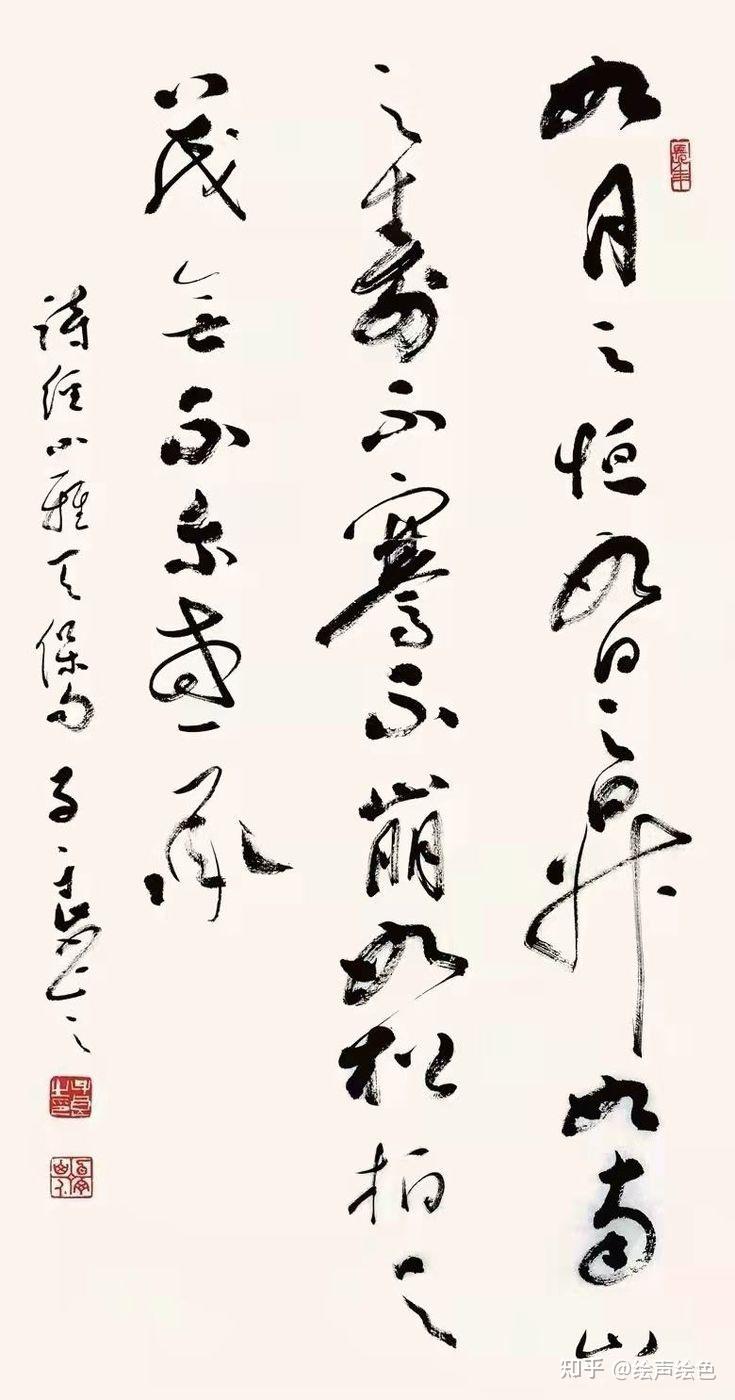 長年
如月之恒如日之昇如南山
之壽不騫不崩如松柏之
茂無不尔或承
詩經小雅天保句
知乎 @绘声绘色